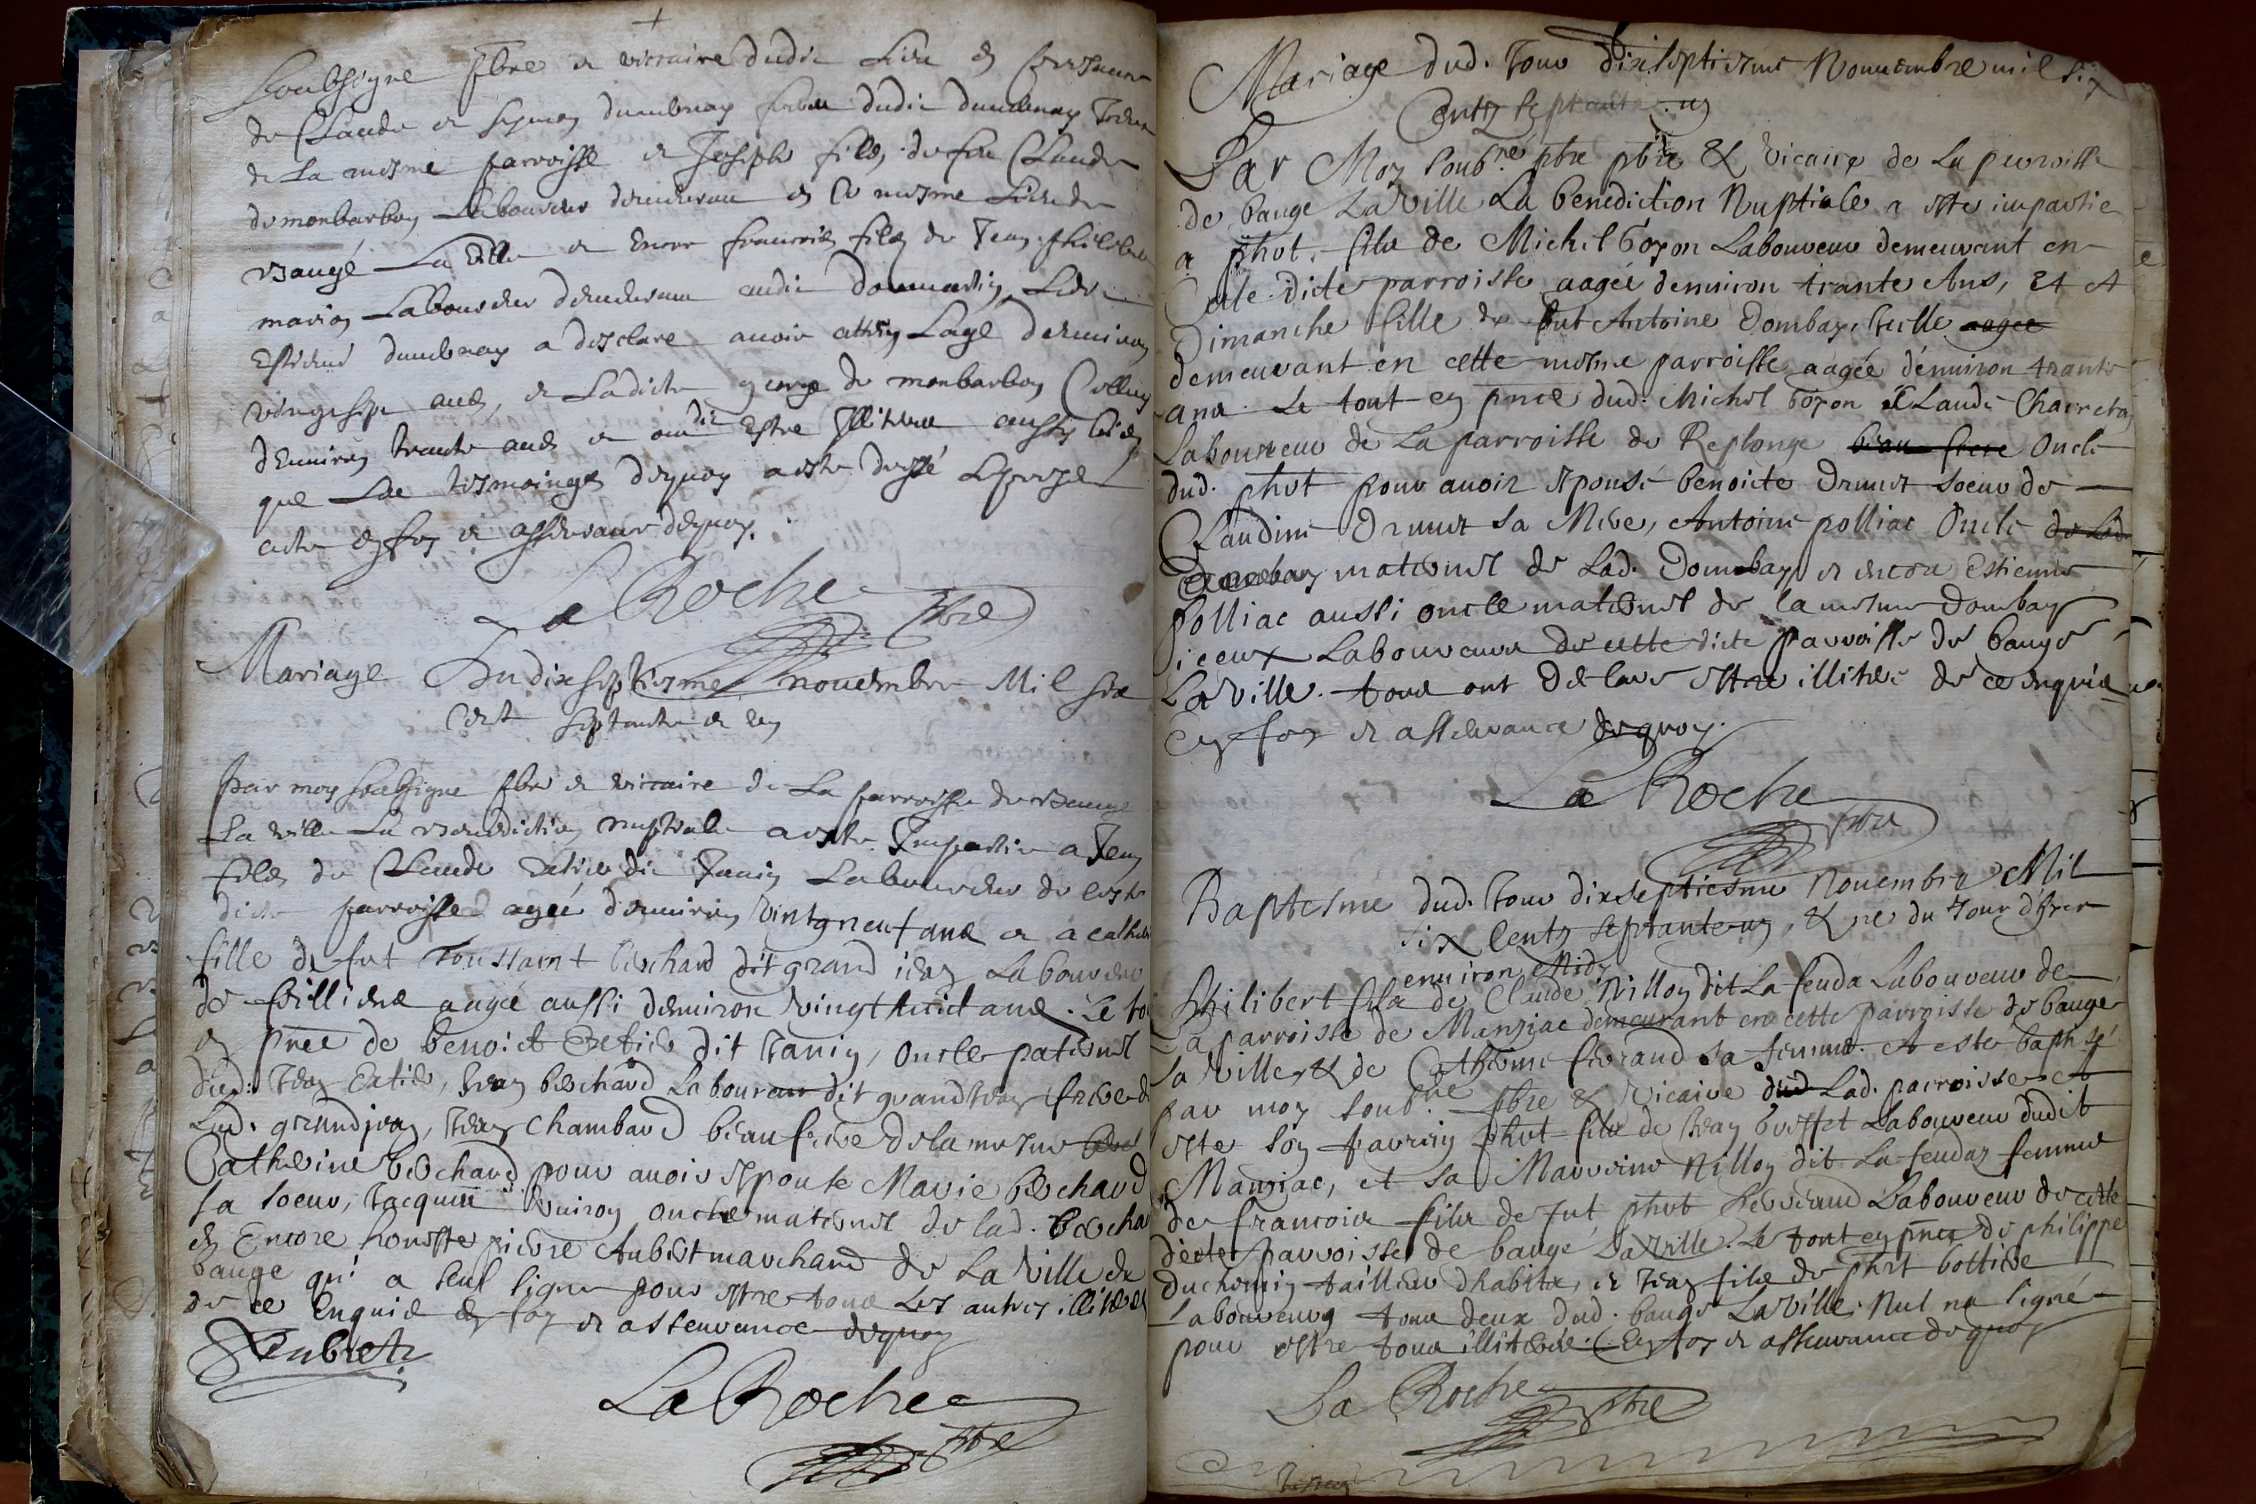 Soubsigne pbre et viccaire dudit lieu en presance
de Claude et Symon dumbnay dudit dumbnay
de la mesme parroisse et Joseph filz de feu Claude
de monbarbon Laboureur demeurant en ce mesme Lieu de
Baugé La Ville et encor francois filz de Jean philibert
marion Laboureur demeurant audit dommartin
Estienne dumbnay a desclare avoir attain Lage denviron
vingt six ans, et Ladicte george de monbarbon
denviron trante ans et ont dit Estre Illiteré aussy bien
que Les tesmoinges dequoy a este dressé Le present
acte en foy et asseurance dequoy.
La Roche pbre
Mariage Du dix septiesme novembre Mil six
Cent septante et un
Par moy soubsigne pbre et viccaire de La parroisse de Bauge
La ville La benediction nuptiale a este Impartie a Jean
filz de Claude dit Janin Laboureur de ceste
dicte parroisse agée denviron vintgneuf ans et a cathe
fille de fut Toussaint bechard dit grand jean Laboureur
de aagée aussi denviron vingt huict ans. Le to
en pnce de benoict dit Janin, oncle paternel
dud. Jean, Jean bechard Laboureur dit grand Jean frere d
Lad. grandjean, Jean Chambard beau frere de la mesme
Catherine bechard pour avoir espousé Marie bechard
sa soeur, Jacquin oncle maternel de lad. becha
et Encore honeste pierre Aubert marchand de La Ville de
bauge qui a seul signe pour estre tous Les autres illiteres
de ce Enquis en foy et asseurance dequoy
Aubert
La Roche
pbre
Mariage dud. Jour dixseptiesme Novembre mil six
Cents septante un
Par Moy soubné pbre & vicaire de La parroisse
de bauge La Ville La benediction Nuptiale a este impartie
a phbt. fils de Michel Goyon Laboureur demeurant en
Cette dicte parroisse aagée denviron trante Ans, Et A
Dimanche fille de fut Antoine Dombay, Icelle aagée
demeurant en cette mesme parroisse aagée d'environ trante
ans. Le tout en pnce dud. Michel Goyon Claude Charreton
Laboureur de La parroisse de Replonge beau frere Oncle
dud. phbt pour avoir espousé benoicte Drunet soeur de
Claudine Drunet sa Mere, Antoine polliac Oncle de Lad
Dombay maternel de Lad. Dombay et encore Estienne
polliac aussi oncle maternel de la mesme Dombay
iceux Laboureurs de cette dicte parroisse de bauge
La Ville. tous ont declare estre illiteré de ce enquis
En foy et asseurance dequoy.
La Roche
pbre
Baptesme dud. Jour dixseptiesme Novembre Mil
six Cents septante un, & né du Jour d'hier
environ Midy
Philibert fils de Claude Nillon dit La fenda Laboureur de
La parroisse de Manziac demeurant en cette parroisse de bauge
La Ville, & de Catherine sa femme. A este baptisé
par moy soubné pbre & Vicaire dud Lad. parroisse et
este son parrin phbt fils de Jean buffet Laboureur dudit
Manziac, et sa Marreine Nillon dit La fenday femme
de francois fils de fut phbt Laboureur de cette
dicte parroisse de baugé La Ville. Le tout en pnce de philippe
duchemin tailleur dhabits, et Jean fils de phbt bottier
Laboureurs tous deux dud. bauge La Ville. Nul na signé
pour estre tous illiteré. En foy et asseurance dequoy
La Roche pbre